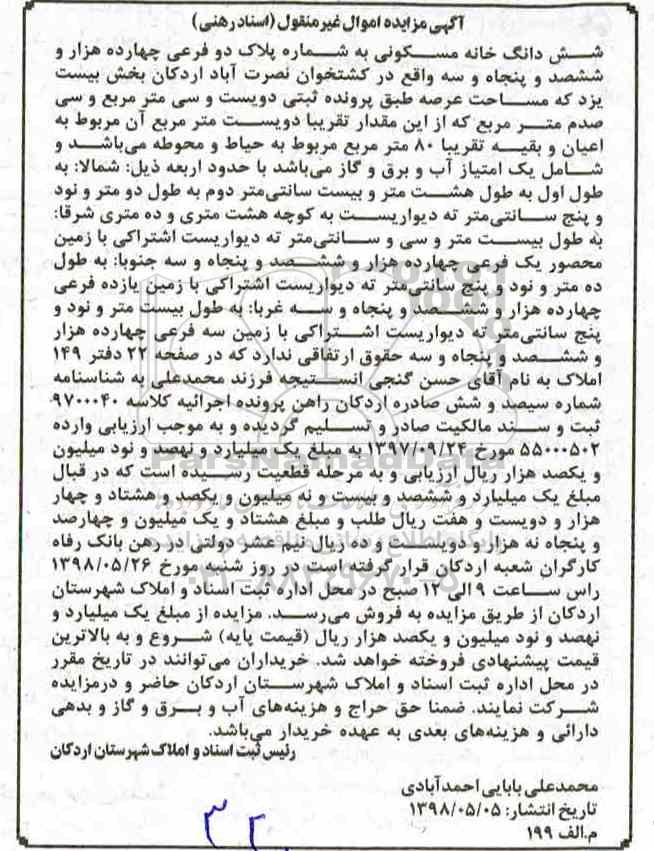 آگهی مزایده اموال غیر منقول (اسناد رهنی)
شش دانگ خانه مسکونی به شماره پلاک دو فرعی چهارده هزار و
ششصد و پنجاه و سه واقع در کشتخوان نصرت آباد اردکان بخش بیست
یزد که مساحت عرصه طبق پرونده ثبتی دویست و سی متر مربع و سی
صدم متر مربع که از این مقدار تقریبا دویست متر مربع آن مربوط به
اعیان و بقیه تقریبا ۸۰ متر مربع مربوط به حیاط و محوطه می‌باشد و
شامل یک امتیاز آب و برق و گاز می‌باشد با حدود اربعه ذیل: شمالا: به
طول اول به طول هشت متر و بیست سانتی‌متر دوم به طول دو متر و نود
و پنج سانتی‌متر ته دیواریست به کوچه هشت متری و ده متری شرقا:
به طول بیست متر و سی و سانتی‌متر ته دیواریست اشتراکی با زمین
محصور یک فرعی چهارده هزار و ششصد و پنجاه و سه جنوبا: به طول
ده متر و نود و پنج سانتی‌متر ته دیواریست اشتراکی با زمین یازده فرعی
چهارده هزار و ششصد و پنجاه و سه غربا: به طول بیست متر و نود و
پنج سانتی‌متر ته دیواریست اشتراکی با زمین سه فرعی چهارده هزار
و ششصد و پنجاه و سه حقوق ارتفاقی ندارد که در صفحه ۲۲ دفتر ۱۴۹
املاک به نام آقای حسن گنجی انستیجه فرزند محمدعلی به شناسنامه
شماره سیصد و شش صادره اردکان راهن پرونده اجرائیه کلاسه ۹۷۰۰۰۴۰
ثبت و سند مالکیت صادر و تسلیم گردیده و به موجب ارزیابی وارده
۵۵۰۰۰۵۰۲ مورخ ۱۳۹۷/۰۹/۲۴ به مبلغ یک میلیارد و نهصد و نود میلیون
و یکصد هزار ریال ارزیابی و به مرحله قطعیت رسیده است که در قبال
مبلغ یک میلیارد و ششصد و بیست و نه میلیون و یکصد و هشتاد و چهار
هزار و دویست و هفت ریال طلب و مبلغ هشتاد و یک میلیون و چهارصد
و پنجاه نه هزار و دویست و ده ریال نیم عشر دولتی در رهن بانک رفاه
کارگران شعبه اردکان قرار گرفته است در روز شنبه مورخ ۱۳۹۸/۰۵/۲۶
راس ساعت ۹ الی ۱۲ صبح در محل اداره ثبت اسناد و املاک شهرستان
اردکان از طریق مزایده به فروش می‌رسد. مزایده از مبلغ یک میلیارد و
نهصد و نود میلیون و یکصد هزار ریال (قیمت پایه) شروع و به بالاترین
قیمت پیشنهادی فروخته خواهد شد. خریداران می‌توانند در تاریخ مقرر
در محل اداره ثبت اسناد و املاک شهرستان اردکان حاضر و درمزایده
شرکت نمایند. ضمنا حق حراج و هزینه‌های آب و برق و گاز و بدهی
دارائی و هزینه‌های بعدی به عهده خریدار می‌باشد.
رئیس ثبت اسناد و املاک شهرستان اردکان
محمدعلی بابایی احمدآبادی
تاریخ انتشار: ۱۳۹۸/۰۵/۰۵
م.الف ۱۹۹